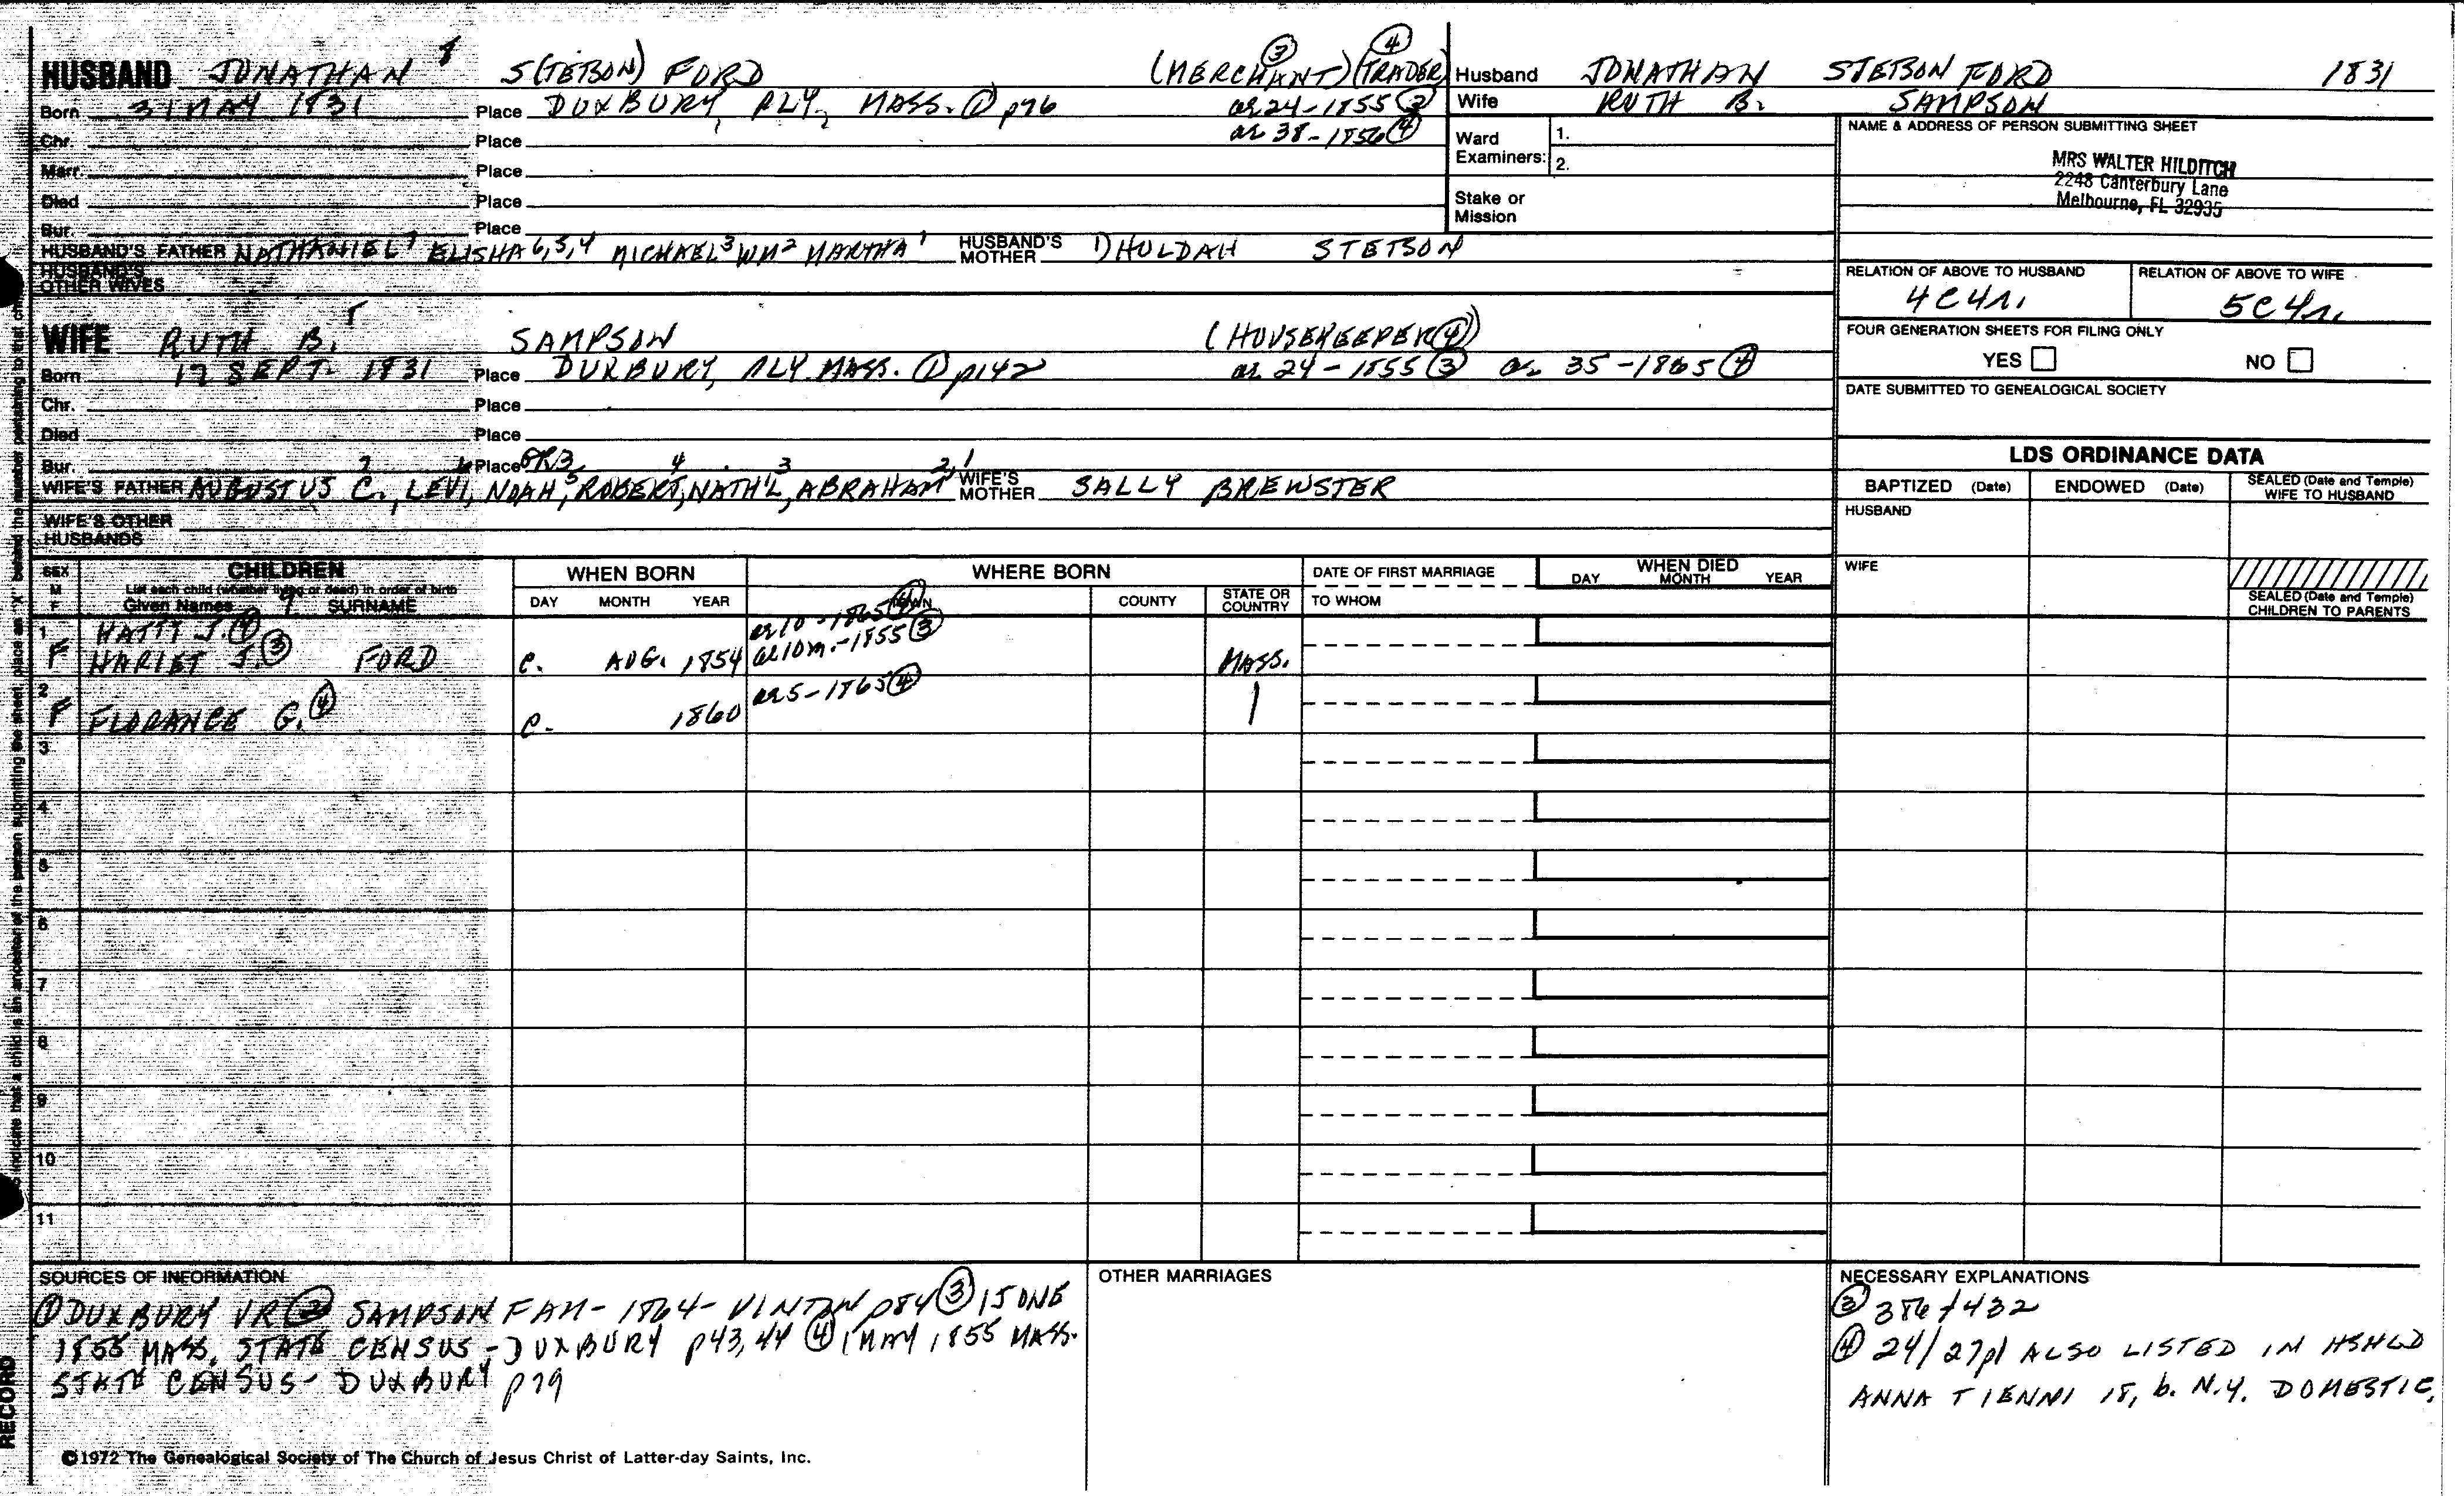 HUSBAND JONATHAN 8 S(TETSON) FORD (MERCHANT) ③ (TRADER) ④
Born 31 MAY 1831 Place DUXBURY, PLY., MASS. ① p76 ae 24-1855 ③
Chr. Place ae 38-1856 ④
Marr. Place
Died Place
Bur. Place
HUSBAND'S FATHER NATHANIEL 7 ELISHA 6,5,4 MICHAEL 3 WM 2 MARTHA 1 HUSBAND'S MOTHER 1) HULDAH STETSON
HUSBAND'S OTHER WIVES
WIFE RUTH B. SAMPSON (HOUSEKEEPER ④)
Born 17 SEPT. 1831 Place DUXBURY, PLY. MASS. ① p142 ae 24-1855 ③ ae 35-1865 ④
Chr. Place
Died Place
Bur. Place
WIFE'S FATHER AUGUSTUS C., LEVI, NOAH 5, ROBERT 4, NATH'L 3, ABRAHAM 2,1 WIFE'S MOTHER SALLY BREWSTER
WIFE'S OTHER HUSBANDS
Husband JONATHAN STETSON FORD 1831
Wife RUTH B. SAMPSON
Ward Examiners: 1.
2.
Stake or Mission
NAME & ADDRESS OF PERSON SUBMITTING SHEET
MRS WALTER HILDITCH
2248 Canterbury Lane
Melbourne, FL 32935
RELATION OF ABOVE TO HUSBAND RELATION OF ABOVE TO WIFE
4C4r. 5C4r.
FOUR GENERATION SHEETS FOR FILING ONLY
YES NO
DATE SUBMITTED TO GENEALOGICAL SOCIETY
LDS ORDINANCE DATA
BAPTIZED (Date) ENDOWED (Date) SEALED (Date and Temple) WIFE TO HUSBAND
HUSBAND
WIFE
SEALED (Date and Temple) CHILDREN TO PARENTS
SEX M F CHILDREN WHEN BORN WHERE BORN DATE OF FIRST MARRIAGE WHEN DIED
List each child (whether living or dead) in order of birth
Given Names 9 SURNAME DAY MONTH YEAR TOWN COUNTY STATE OR COUNTRY TO WHOM DAY MONTH YEAR
1 HATTY J. ④ ae 10-1865 ④
F HARIET J. ③ FORD c. AUG. 1854 ae 10m.-1855 ③ MASS.
2 ae 5-1865 ④
F FLORANCE G. ④ c. 1860
3
4
5
6
7
8
9
10
11
SOURCES OF INFORMATION
① DUXBURY VR ② SAMPSON FAM- 1864- VINTON p84 ③ 15 ONE
1855 MASS. STATE CENSUS - DUXBURY p43,44 ④ 1 MAY 1855 MASS.
STATE CENSUS- DUXBURY p79
OTHER MARRIAGES
NECESSARY EXPLANATIONS
③ 386/432
④ 24/27pl ALSO LISTED IN HSHLD
ANNA TIENNI 18, b. N.Y. DOMESTIC.
RECORD
©1972 The Genealogical Society of The Church of Jesus Christ of Latter-day Saints, Inc.